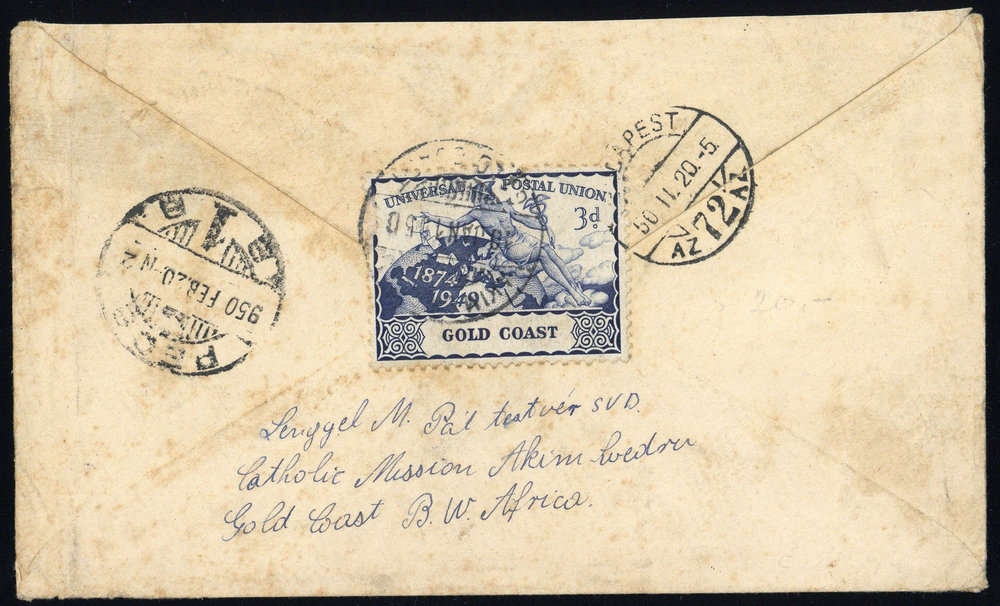 BUDAPEST
50 II. 20.-5.
72
AZ AZ
UNIVERSAL POSTAL UNION
3d
1874
GOLD COAST
950 FEB 20. N 2
Lengyel M. Pál testvér SVD.
Catholic Mission Akim-Swedru
Gold Coast B. W. Africa.